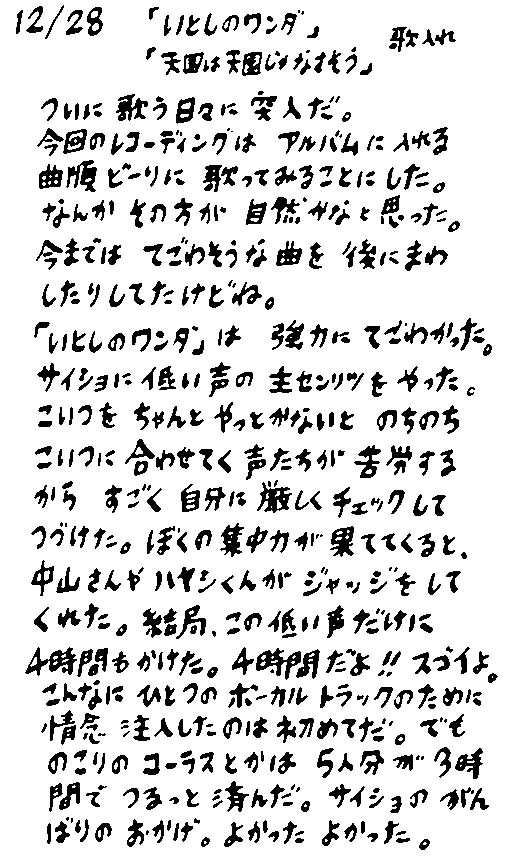 12/28 「いとしのワンダ」 歌入れ
「天国は天国じゃなさそう」
ついに歌う日々に突入だ。
今回のレコーディングは アルバムに入れる
曲順どーりに 歌ってみることにした。
なんか その方が 自然かなと思った。
今までは てごわそうな曲を 後にまわ
したりしてたけどね。
「いとしのワンダ」は 強力に てごわかった。
サイショに 低い声の 主センリツを やった。
こいつを ちゃんと やっとかないと のちのち
こいつに 合わせてく 声たちが 苦労する
から すごく 自分に 厳しくチェックして
つづけた。ぼくの集中力が 果ててくると、
中山さんや ハヤシくんが ジャッジをして
くれた。結局、この低い声だけに
4時間もかけた。4時間だよ!! スゴイよ。
こんなに ひとつの ボーカルトラックのために
情念 注入したのは初めてだ。でも
のこりの コーラスとかは 5人分が 3時
間で つるっと 済んだ。サイショの がん
ばりの おかげ。よかった よかった。